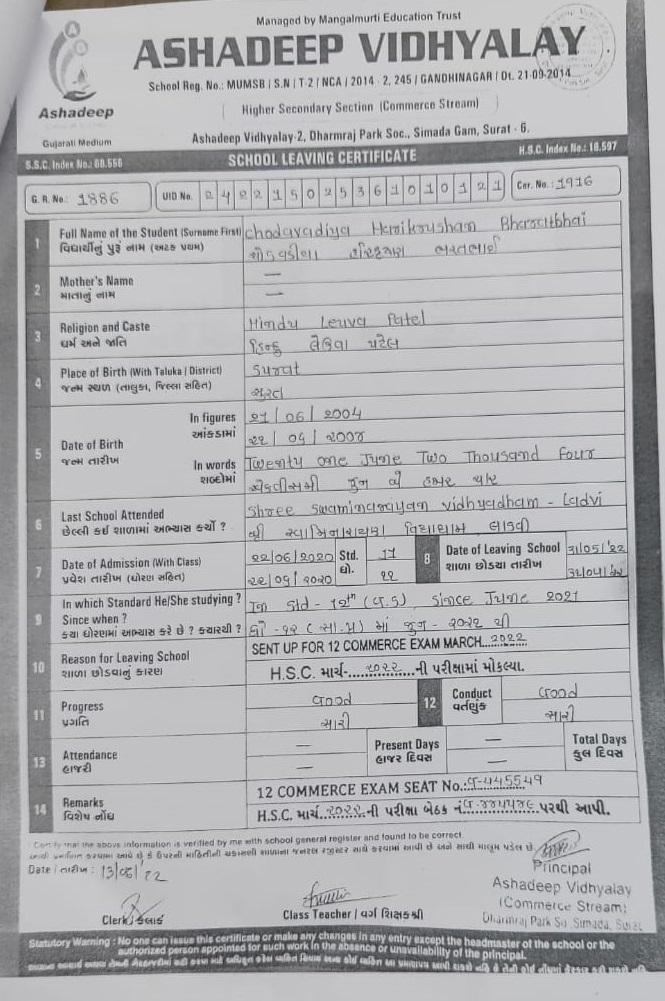 Managed by Mangalmurti Education Trust
ASHADEEP VIDHYALAY
School Reg. No.: MUMSB / S.N / T-2 / NCA / 2014 - 2, 245 / GANDHINAGAR / Dt. 21-09-2014
Ashadeep
Higher Secondary Section (Commerce Stream)
Gujarati Medium
Ashadeep Vidhyalay-2, Dharmraj Park Soc., Simada Gam, Surat - 6.
S.S.C. Index No.: 60.556
SCHOOL LEAVING CERTIFICATE
H.S.C. Index No.: 16.597
G. R. No.: 1886
UID No. 242215025361010121
Cer. No.: 1916
1 Full Name of the Student (Surname First) Chodavadiya Harikrushan Bharatbhai
વિદ્યાર્થીનું પુરૂં નામ (અટક પ્રથમ) ચોડવડીયા હરિકૃષ્ણ ભરતભાઈ
2 Mother's Name —
માતાનું નામ —
3 Religion and Caste Hindu Leuva Patel
ધર્મ અને જાતિ હિન્દુ લેઉવા પટેલ
4 Place of Birth (With Taluka / District) Surat
જન્મ સ્થળ (તાલુકા, જિલ્લા સહિત) સુરત
5 Date of Birth
જન્મ તારીખ
In figures 21/06/2004
આંકડામાં ૨૧/૦૬/૨૦૦૪
In words Twenty one June Two Thousand Four
શબ્દોમાં એકવીસમી જુન બે હજાર ચાર
6 Last School Attended Shree Swaminarayan vidhyadham - Ladvi
છેલ્લી કઈ શાળામાં અભ્યાસ કર્યો ? શ્રી સ્વામિનારાયણ વિદ્યાધામ લાડવી
7 Date of Admission (With Class) 22/06/2020 Std. 11
પ્રવેશ તારીખ (ધોરણ સહિત) ૨૨/૦૬/૨૦૨૦ ધો. ૧૧
8 Date of Leaving School 31/05/22
શાળા છોડયા તારીખ ૩૧/૦૫/૨૨
9 In which Standard He/She studying ? In Std - 12th (G.S), since June 2021
Since when ?
કયા ધોરણમાં અભ્યાસ કરે છે ? કયારથી ? ધો - ૧૨ (સા.પ્ર) માં જુન - ૨૦૨૧ થી
10 Reason for Leaving School SENT UP FOR 12 COMMERCE EXAM MARCH.. 2022
શાળા છોડવાનું કારણ H.S.C. માર્ચ-.. ૨૦૨૨ ..ની પરીક્ષામાં મોકલ્યા.
11 Progress Good
પ્રગતિ સારી
12 Conduct Good
વર્તણુંક સારી
13 Attendance —
હાજરી —
Present Days —
હાજર દિવસ —
Total Days
કુલ દિવસ
14 Remarks 12 COMMERCE EXAM SEAT No.: G-445549
વિશેષ નોંધ H.S.C. માર્ચ ૨૦૨૨ ની પરીક્ષા બેઠક નં. પરથી આપી.
Certify that the above information is verified by me with school general register and found to be correct.
Date / તારીખ : 13/06/22
Principal
Ashadeep Vidhyalay
(Commerce Stream)
Dharmraj Park So. Simada, Surat
Clerk / કલાર્ક
Class Teacher / વર્ગ શિક્ષકશ્રી
Statutory Warning : No one can issue this certificate or make any changes in any entry except the headmaster of the school or the
authorized person appointed for such work in the absence or unavailability of the principal.